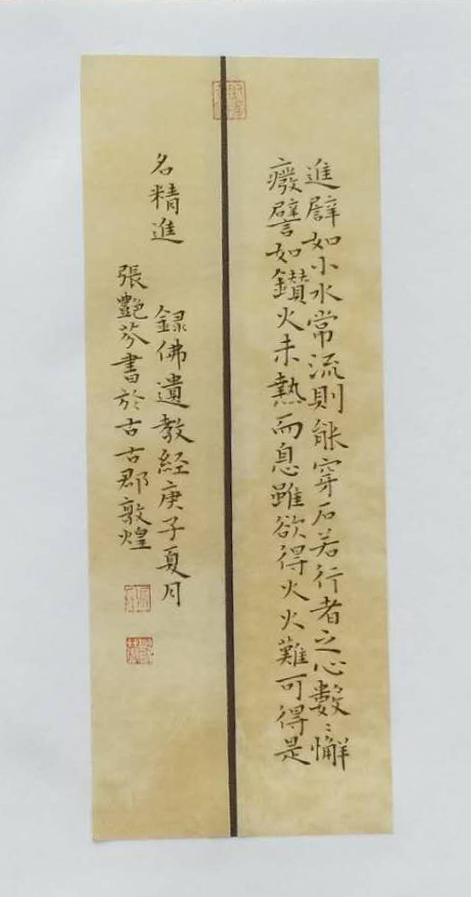 進譬如小水常流則能穿石若行者之心數〻懈
癈譬如鑚火未熱而息雖欲得火火難可得是
名精進
録佛遺教経庚子夏月
張艷芬書於古古郡敦煌